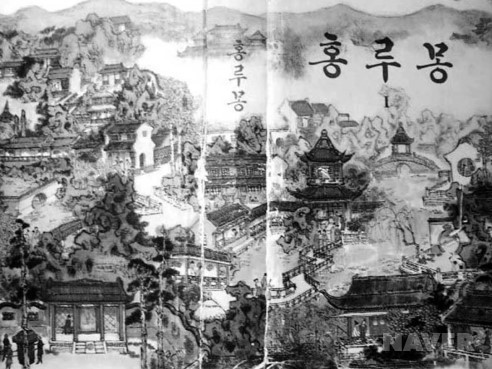 홍루몽
홍루몽
1
NAVER